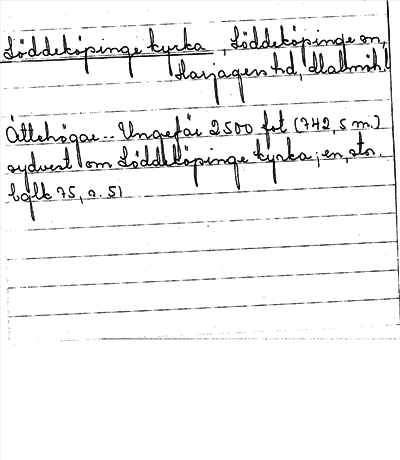 Löddeköpinge kyrka, Löddeköpinge sn,
Harjagers hd, Malmöh.
Ättehögar.- Ungefär 2500 fot (742,5 m.)
sydvest om Löddeköpinge kyrka; en, stor.
75, s. 51